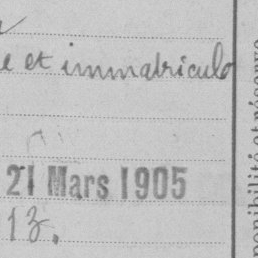 e et immatriculé
21 Mars 1905
13.
ponibilité et réserve